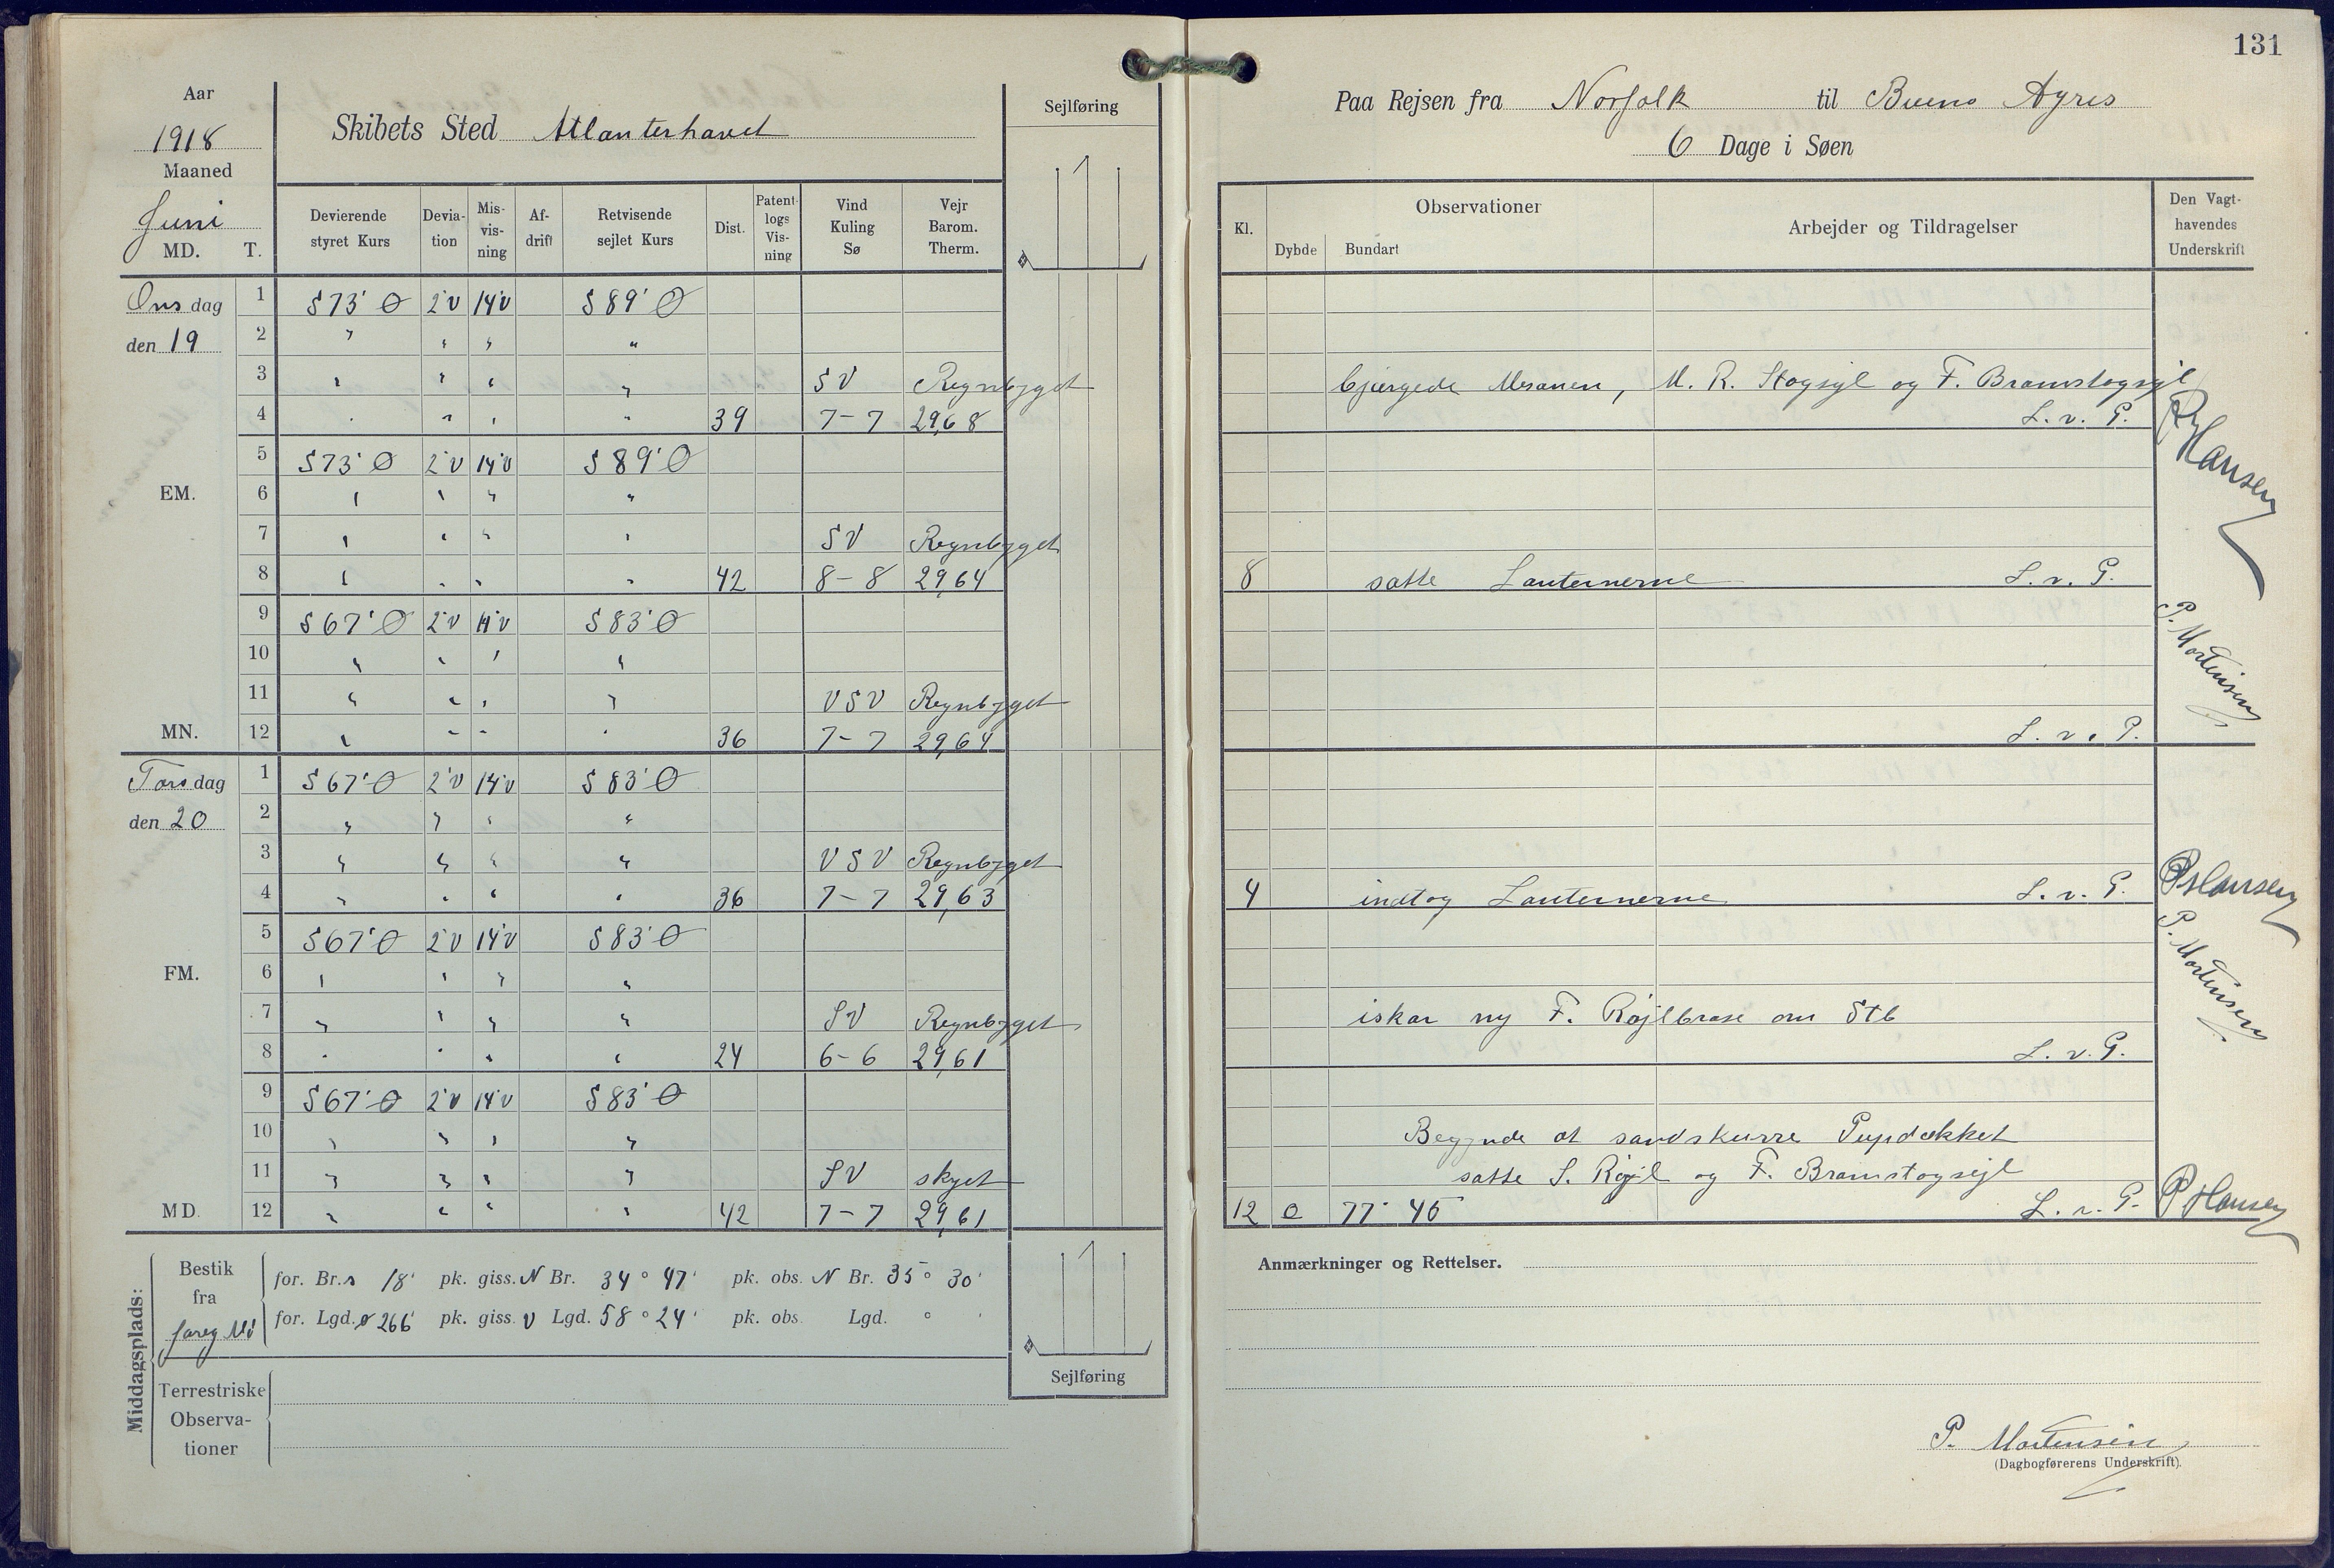 131
Aar
1918
Maaned
Juni
MD. T.
Skibets Sted Atlanterhavet
Sejlføring
Paa Rejsen fra Norfolk til Bueno Ayres
6 Dage i Søen
Devierende styret Kurs
Devia-tion
Mis-vis-ning
Af-drift
Retvisende sejlet Kurs
Dist.
Patent-logs Vis-ning
Vind Kuling Sø
Vejr Barom. Therm.
Kl.
Observationer
Dybde Bundart
Arbejder og Tildragelser
Den Vagt-havendes Underskrift
Onsdag 1 S 73° Ø 2°V 14°V S 89° Ø
den 19 2 " " " "
3 " " " " SV Regnbyget bjærgede Mesanen, M. R. Stagsyl og F. Bramstagsyl
4 " " " " 39 7-7 29,68 L. v. P. P Hansen
5 S 73° Ø 2°V 14°V S 89° Ø
EM. 6 " " " "
7 " " " " SV Regnbyget
8 " " " " 42 8-8 29,64 8 satte Lanternerne L. v. P.
9 S 67° Ø 2°V 14°V S 83° Ø
10 " " " " P. Mortensen
11 " " " " VSV Regnbyget
MN. 12 " " " " 36 7-7 29,64 L. v. P.
Torsdag 1 S 67° Ø 2°V 14°V S 83° Ø
den 20 2 " " " "
3 " " " " VSV Regnbyget
4 " " " " 36 7-7 29,63 4 indtog Lanternerne L. v. P. P Hansen
5 S 67° Ø 2°V 14°V S 83° Ø
FM. 6 " " " " P. Mortensen
7 " " " " SV Regnbyget iskar ny F. Røjlbrase om Stb
8 " " " " 24 6-6 29,61 L. v. P.
9 S 67° Ø 2°V 14°V S 83° Ø
10 " " " " Begynde at sandskurre Pupdækket
11 " " " " SV skyet satte S. Røjl og F. Bramstagsejl
MD. 12 " " " " 42 7-7 29,61 12 77° 45 L. v. P. P Hansen
Middagsplads:
Bestik fra foreg Md
for. Br. s 18' pk. giss. N Br. 34° 47' pk. obs. N Br. 35° 30'
for. Lgd. ø 266' pk. giss. V Lgd. 58° 24' pk. obs. Lgd. ° '
Terrestriske Observa-tioner
Sejlføring
Anmærkninger og Rettelser.
P. Mortensen
(Dagbogførerens Underskrift).